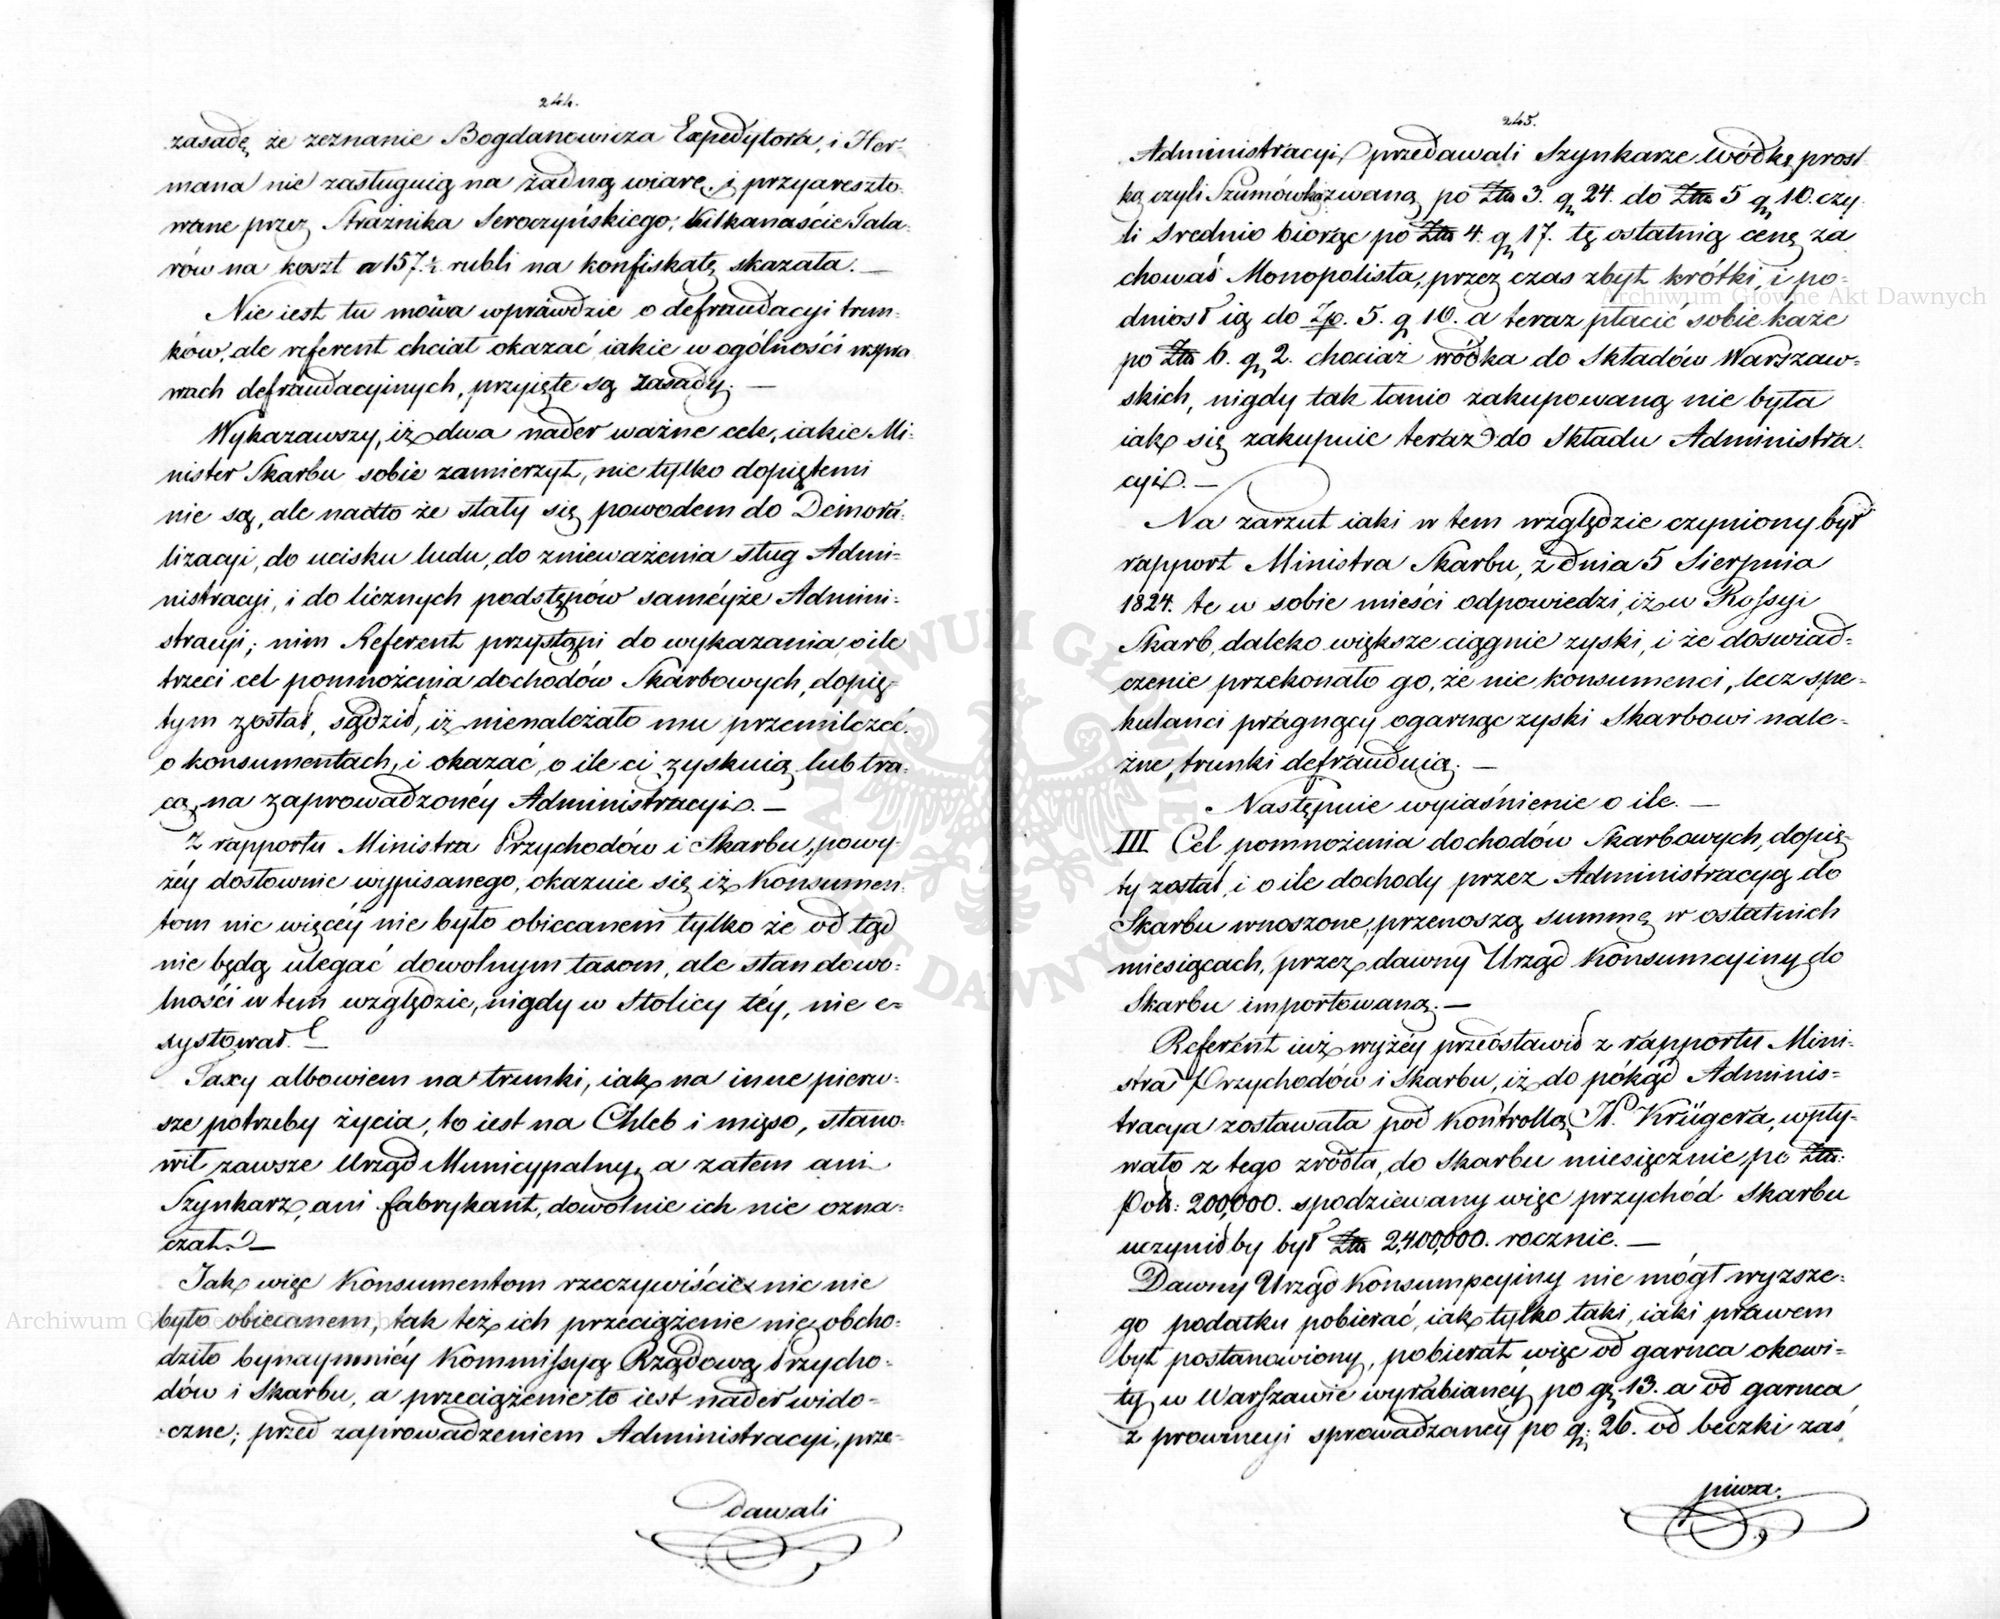 244.
zasadę, że zeznanie Bogdanowicza Expedytora, i Her-
mana nie zasługuią na żadną wiarę, i przyareszto-
wane przez Strażnika Seroczyńskiego, kilkanaście Tala-
rów na koszt a 157 ½ rubli na konfiskatę skazała. —
Nie iest tu mowa wprawdzie o defraudacyi trun-
ków, ale referent chciał okazać iakie w ogólności wspra-
wach defraudacyinych, przyięte są zasady. —
Wykazawszy, iż dwa nader ważne cele, iakie Mi-
nister Skarbu sobie zamierzył, nie tylko dopiętemi
nie są, ale nadto że stały się powodem do Demora-
lizacyi, do ucisku ludu, do znieważenia sług Admi-
nistracyi, i do licznych podstępów saméyże Admini-
stracyi; nim Referent przystąpi do wykazania, o ile
trzeci cel pomnożenia dochodów Skarbowych, dopię-
tym został, sądził, iż nienależało mu przemilczeć
o konsumentach, i okazać, o ile ci zyskuią, lub tra-
cą, na zaprowadzonéy Administracyi. —
Z rapportu Ministra Przychodów i Skarbu, powy-
żéy dosłownie wypisanego, okazuie się iż Konsumen-
tom nic więcéy nie było obiecanem tylko że od tąd
nie będą ulegać dowolnym taxom, ale stan dowo-
lności w tem względzie, nigdy w Stolicy téy, nie e-
xystował. —
Taxy albowiem na trunki, iak na inne pierw-
sze potrzeby życia, to iest na Chleb i mięso, stano-
wił zawsze Urząd Municypalny, a zatem ani
Szynkarz, ani fabrykant, dowolnie ich nie ozna-
czał. —
Jak więc Konsumentom rzeczywiście nic nie
było obiecanem, tak też ich przeciążenie nie obcho-
dziło bynaymniéy Kommissyą Rządową Przycho-
dów i Skarbu, a przeciążenie to iest nader wido-
czne; przed zaprowadzeniem Administracyi, prze-
dawali
245.
Administracyi przedawali Szynkarze wódkę prost-
ką czyli Szumówką zwaną, po Złt 3. gr 24. do Złt 5 gr 10. czy-
li średnio biorąc po Złt 4. gr 17. tę ostatnią cenę za
chował Monopolista, przez czas zbyt krótki, i po-
dniósł ią do Zp. 5. g 10. a teraz płacić sobie każe
po Złt 6. gr 2. chociaż wódka do Składów Warszaw-
skich, nigdy tak tanio zakupowaną nie była
iak się zakupuie teraz do Składu Administra-
cyi. —
Na zarzut iaki w tem względzie czyniony był
rapport Ministra Skarbu, z dnia 5 Sierpnia
1824. te w sobie mieści odpowiedzi, iż w Rossyi
Skarb, daleko większe ciągnie zyski, i że doswiad-
czenie przekonało go, że nie konsumenci, lecz spe-
kulanci pragnący ogarnąć zyski Skarbowi nale-
żne, trunki defrauduią. —
Następuie wyiaśnienie o ile. —
III Cel pomnożenia dochodów Skarbowych, dopię-
ty został, i o ile dochody przez Administracyą do
Skarbu wnoszone, przenoszą summę w ostatnich
miesiącach, przez dawny Urząd Konsumcyiny do
Skarbu importowaną. —
Referent iuż wyżéy przedstawił z rapportu Mini-
stra Przychodów i Skarbu, iż do pókąd Adminis-
tracya zostawała pod Kontrollą P. Krügera, wpły-
wało z tego zródła, do Skarbu miesięcznie po Złt:
Pol: 200,000. spodziewany więc przychód Skarbu
uczyniłby był Złt 2,400,000. rocznie. —
Dawny Urząd Konsumpcyiny nie mógł wyzsze-
go podatku pobierać, iak tylko taki, iaki prawem
był postanowiony, pobierał więc od garnca okowi-
ty w Warszawie wyrabianéy po gr 13. a od garnca
z prowincyi sprowadzanéy po gr: 26. od beczki zaś
piwa.